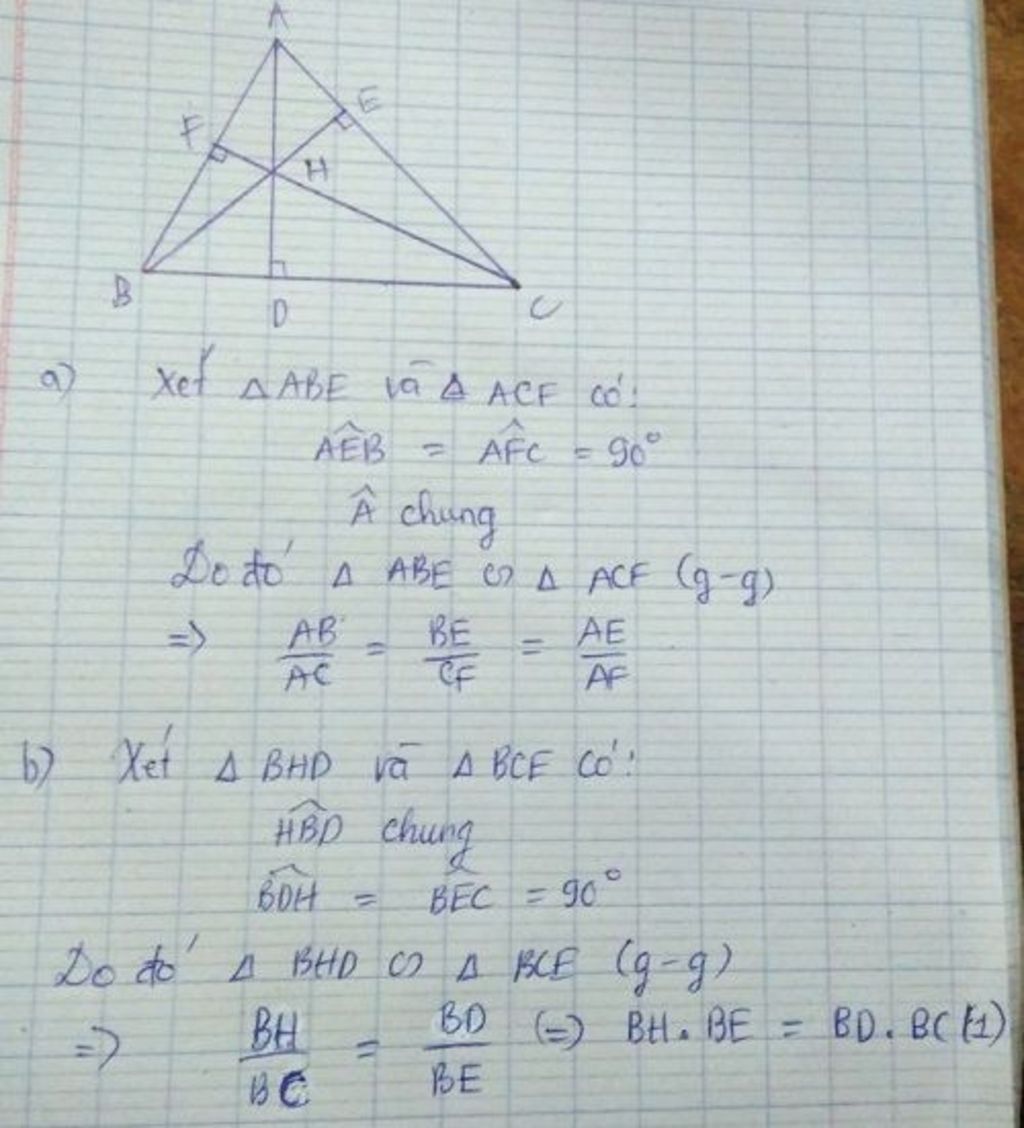 A
E
F
H
B
D
C
a) Xét △ ABE và △ ACF có:
AÊB = AF̂C = 90°
Â chung
Do đó △ ABE ∽ △ ACF (g-g)
=> AB/AC = BE/CF = AE/AF
b) Xét △ BHD và △ BCE có:
HB̂D chung
BD̂H = BÊC = 90°
Do đó △ BHD ∽ △ BCE (g-g)
=> BH/BC = BD/BE (=) BH.BE = BD.BC (1)